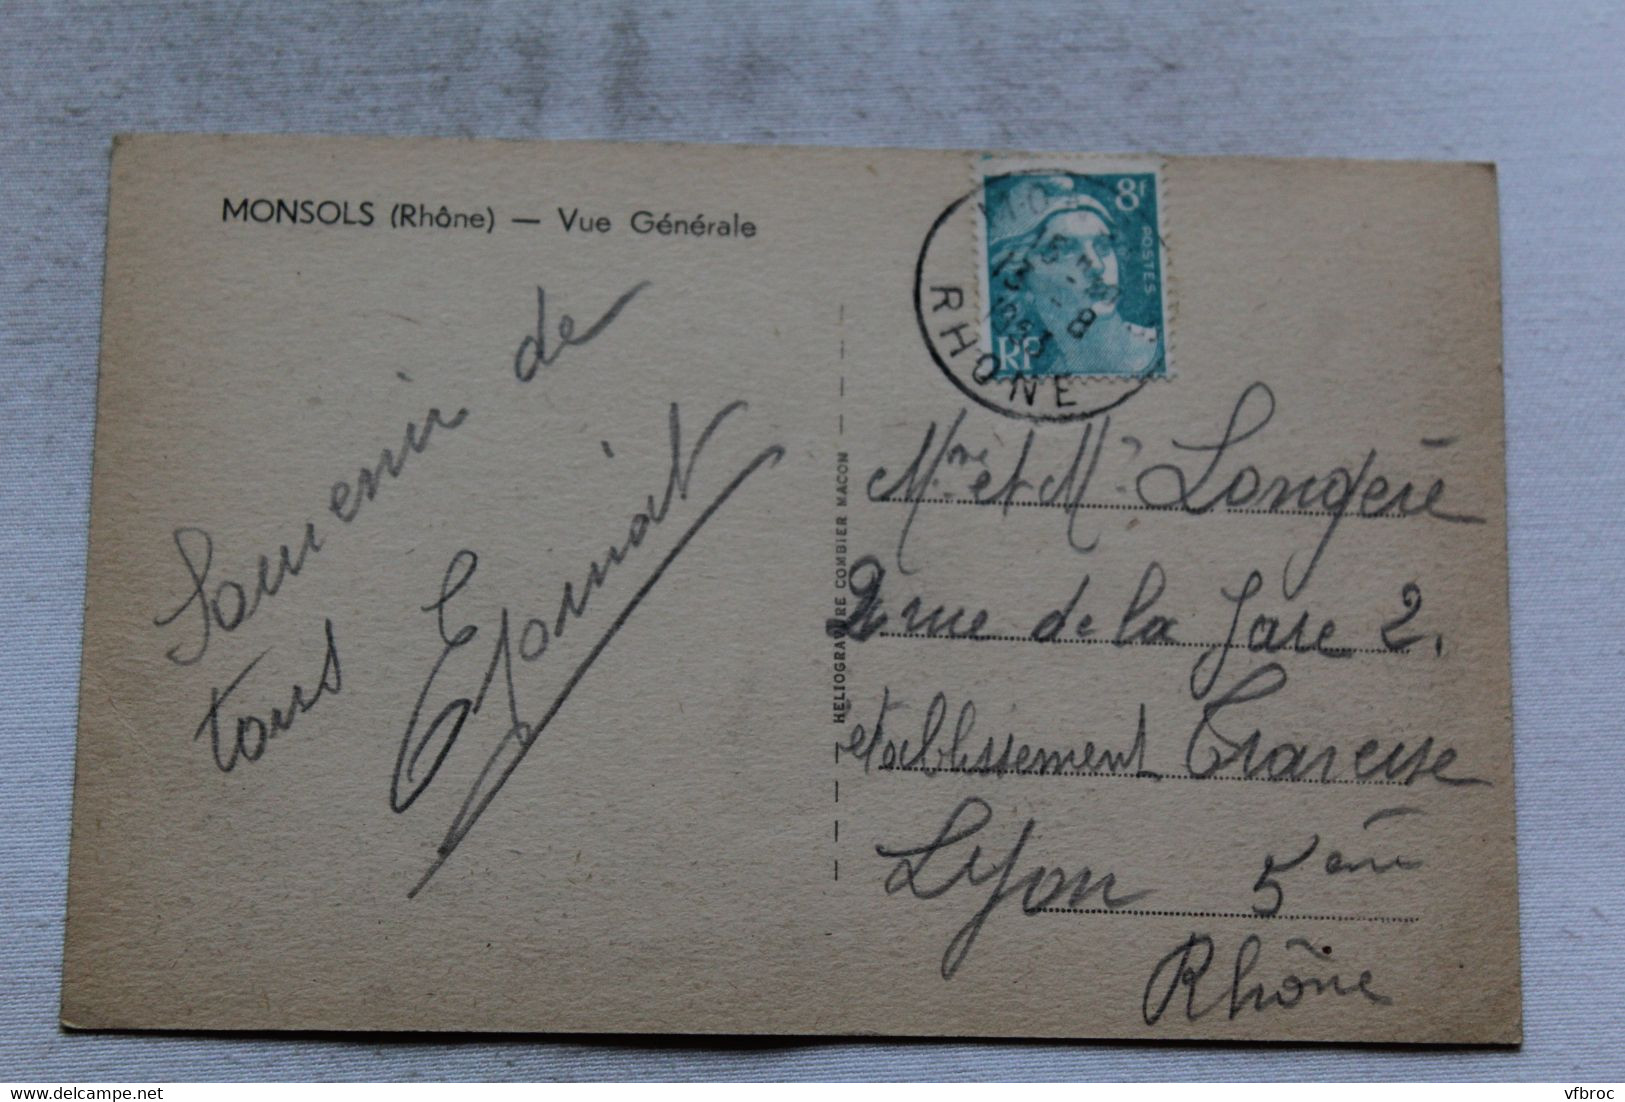 MONSOLS (Rhône) — Vue Générale
Souvenir de
tous
HELIOGRAVURE COMBIER MACON
8f
POSTES
RF
15
13 - 8
1953
RHONE
Mme et Mr Longère
2 rue de la Gare 2.
etablissement Traverse
Lyon 5ème
Rhône
vfbroc